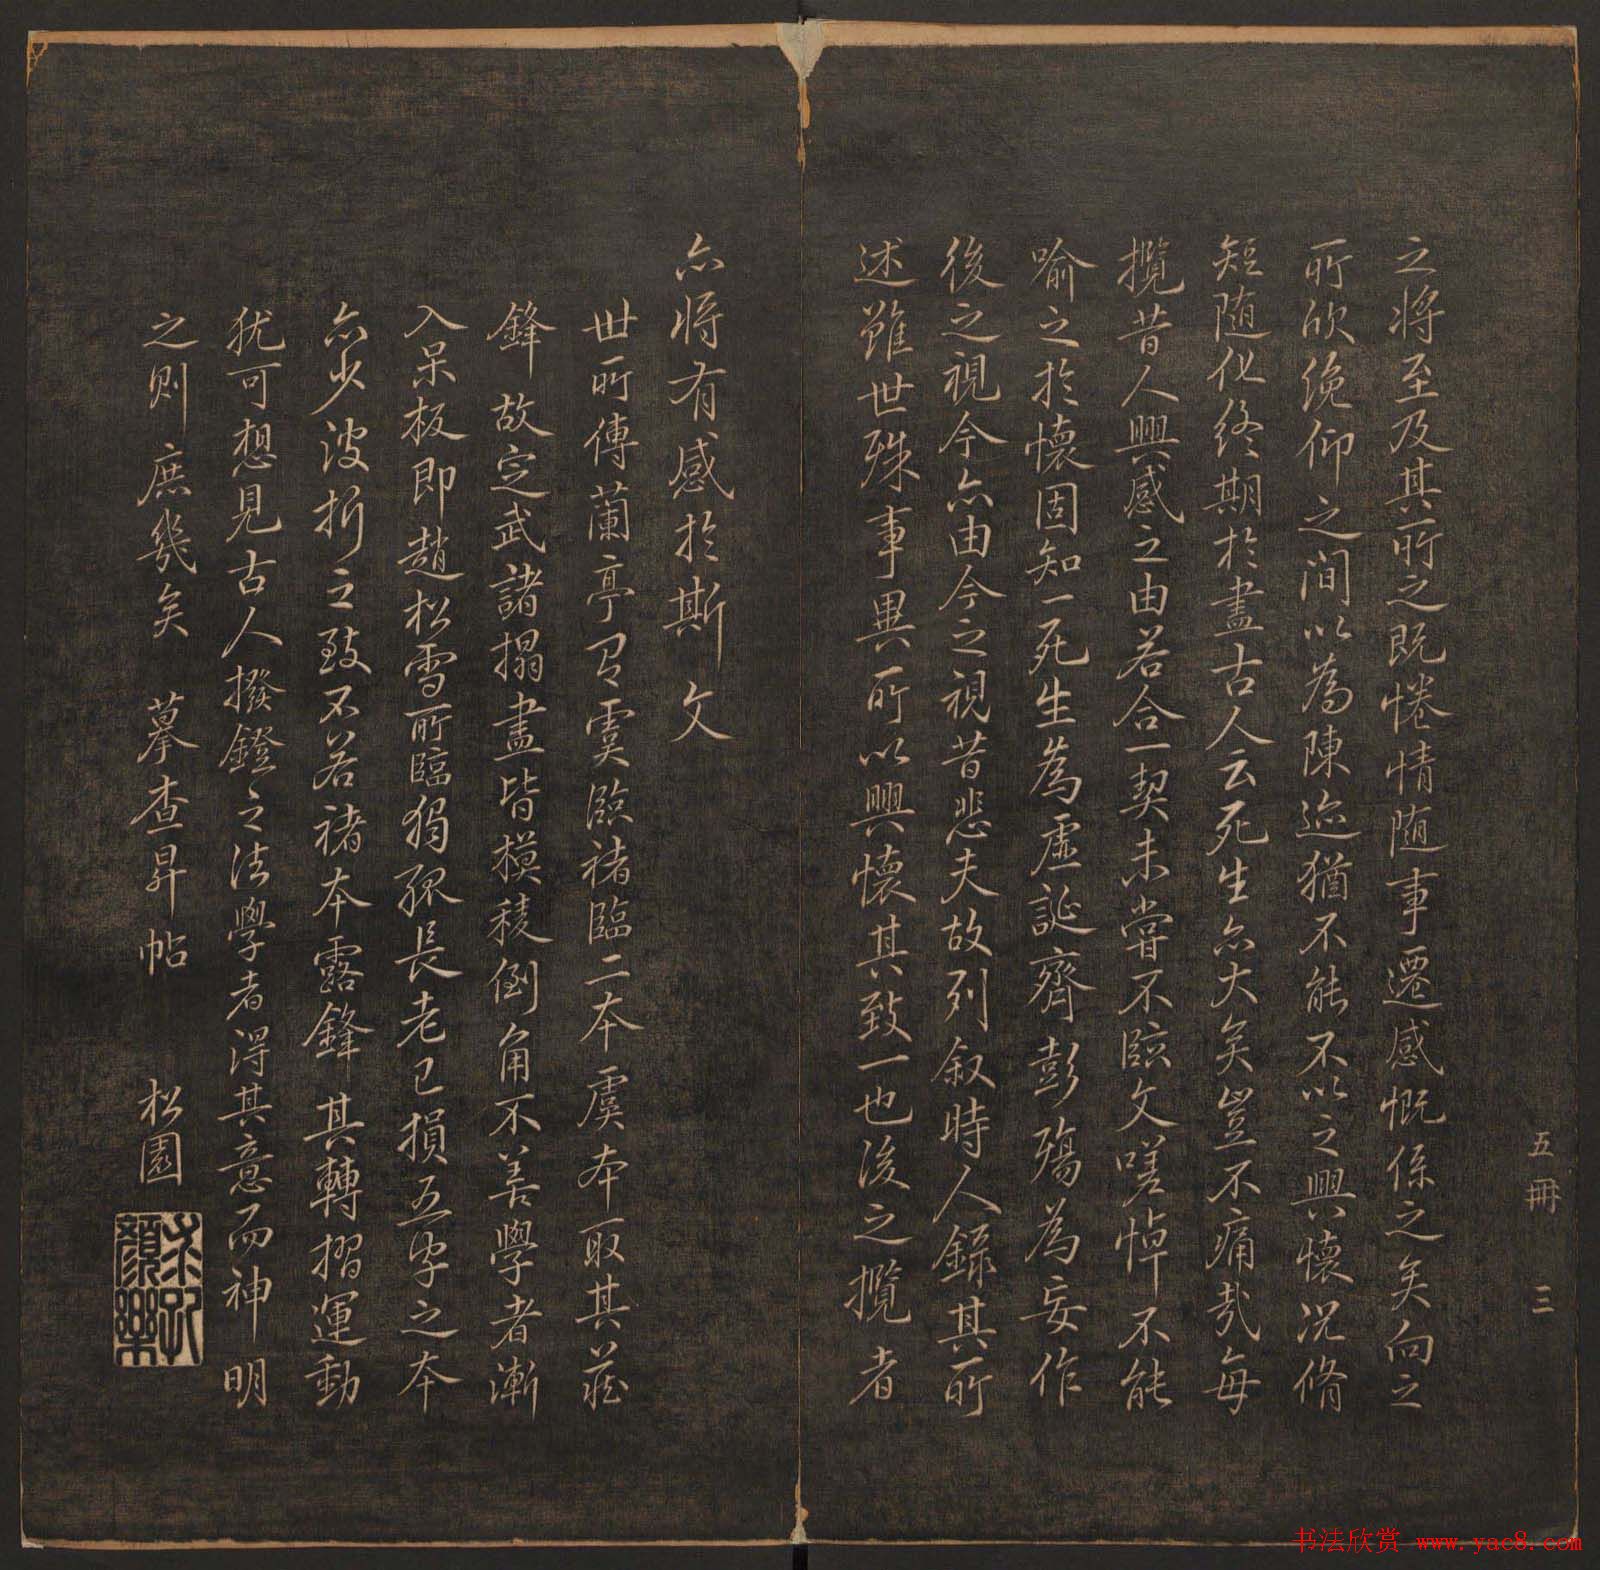 五冊 三
之將至及其所之既惓情随事遷感慨係之矣向之
所欣俛仰之間以為陳迹猶不能不以之興懷況脩
短随化終期於盡古人云死生亦大矣豈不痛哉每
攬昔人興感之由若合一契未嘗不臨文嗟悼不能
喻之於懷固知一死生為虛誕齊彭殤為妄作
後之視今亦由今之視昔悲夫故列叙時人錄其所
述雖世殊事異所以興懷其致一也後之攬者
亦將有感於斯文
世所傳蘭亭有虞臨褚臨二本虞本取其藏
鋒故定武諸搨盡皆模稜倒角不善學者漸
入呆板即趙松雪所臨獨孤長老已損五字之本
亦少波折之致不若褚本露鋒其轉摺運動
犹可想見古人撥鐙之法學者得其意而神明
之則庶幾矣 摹查昇帖 松園
書法欣賞 www.yac8.com